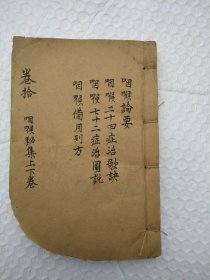 咽喉論要
咽喉二十四症治歌訣
咽喉七十二症治圖說
咽喉備用列方
卷拾
咽喉秘集上下卷